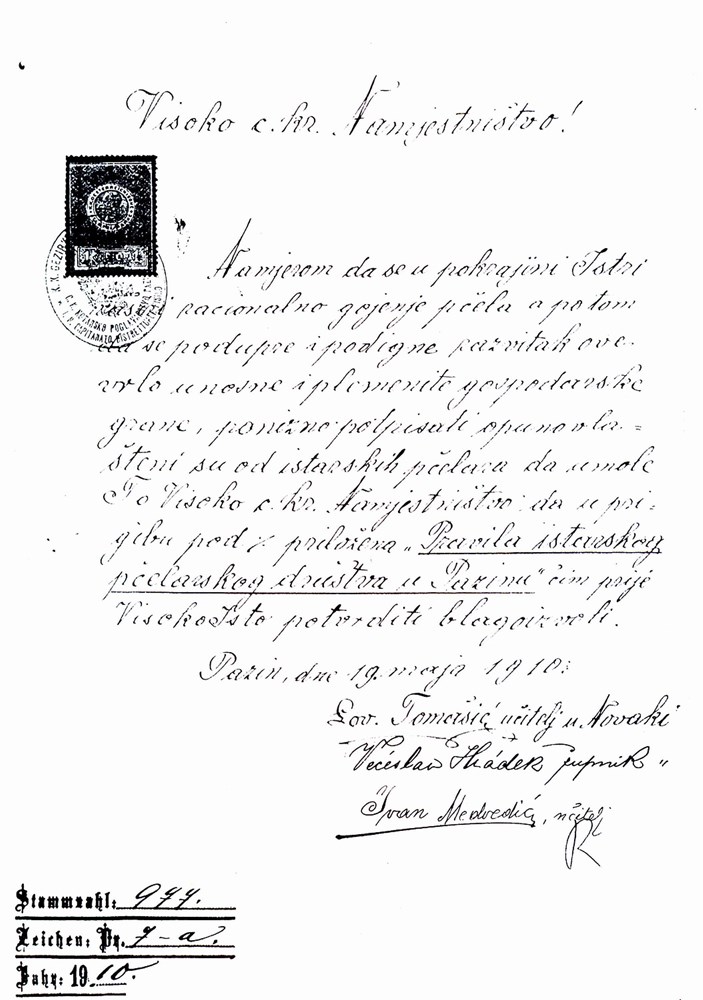 Visoko c. kr. Namjestništvo!
Namjerom da se u pokrajini Istri
racionalno gojenje pčela a potom
da se podupre i podigne razvitak ove
vrlo unosne i plemenite gospodarske
grane, ponizno potpisati opunovla=
šteni su od istarskih pčelara da umole
To Visoko c. kr. Namjestništvo da u pri-
gibu pod ·/. priložena „Pravila istarskog
pčelarskog društva u Pazinu“ čim prije
Visoko Isto potvrditi blagoizvoli.
Pazin, dne 19. maja 1910:
Lov. Tomašić učitelj u Novaki
Većeslav Hládek župnik „
Ivan Medvedić, učitelj
Stammzahl: 977.
Zeichen: Pr. 7-a.
Jahr: 1910.